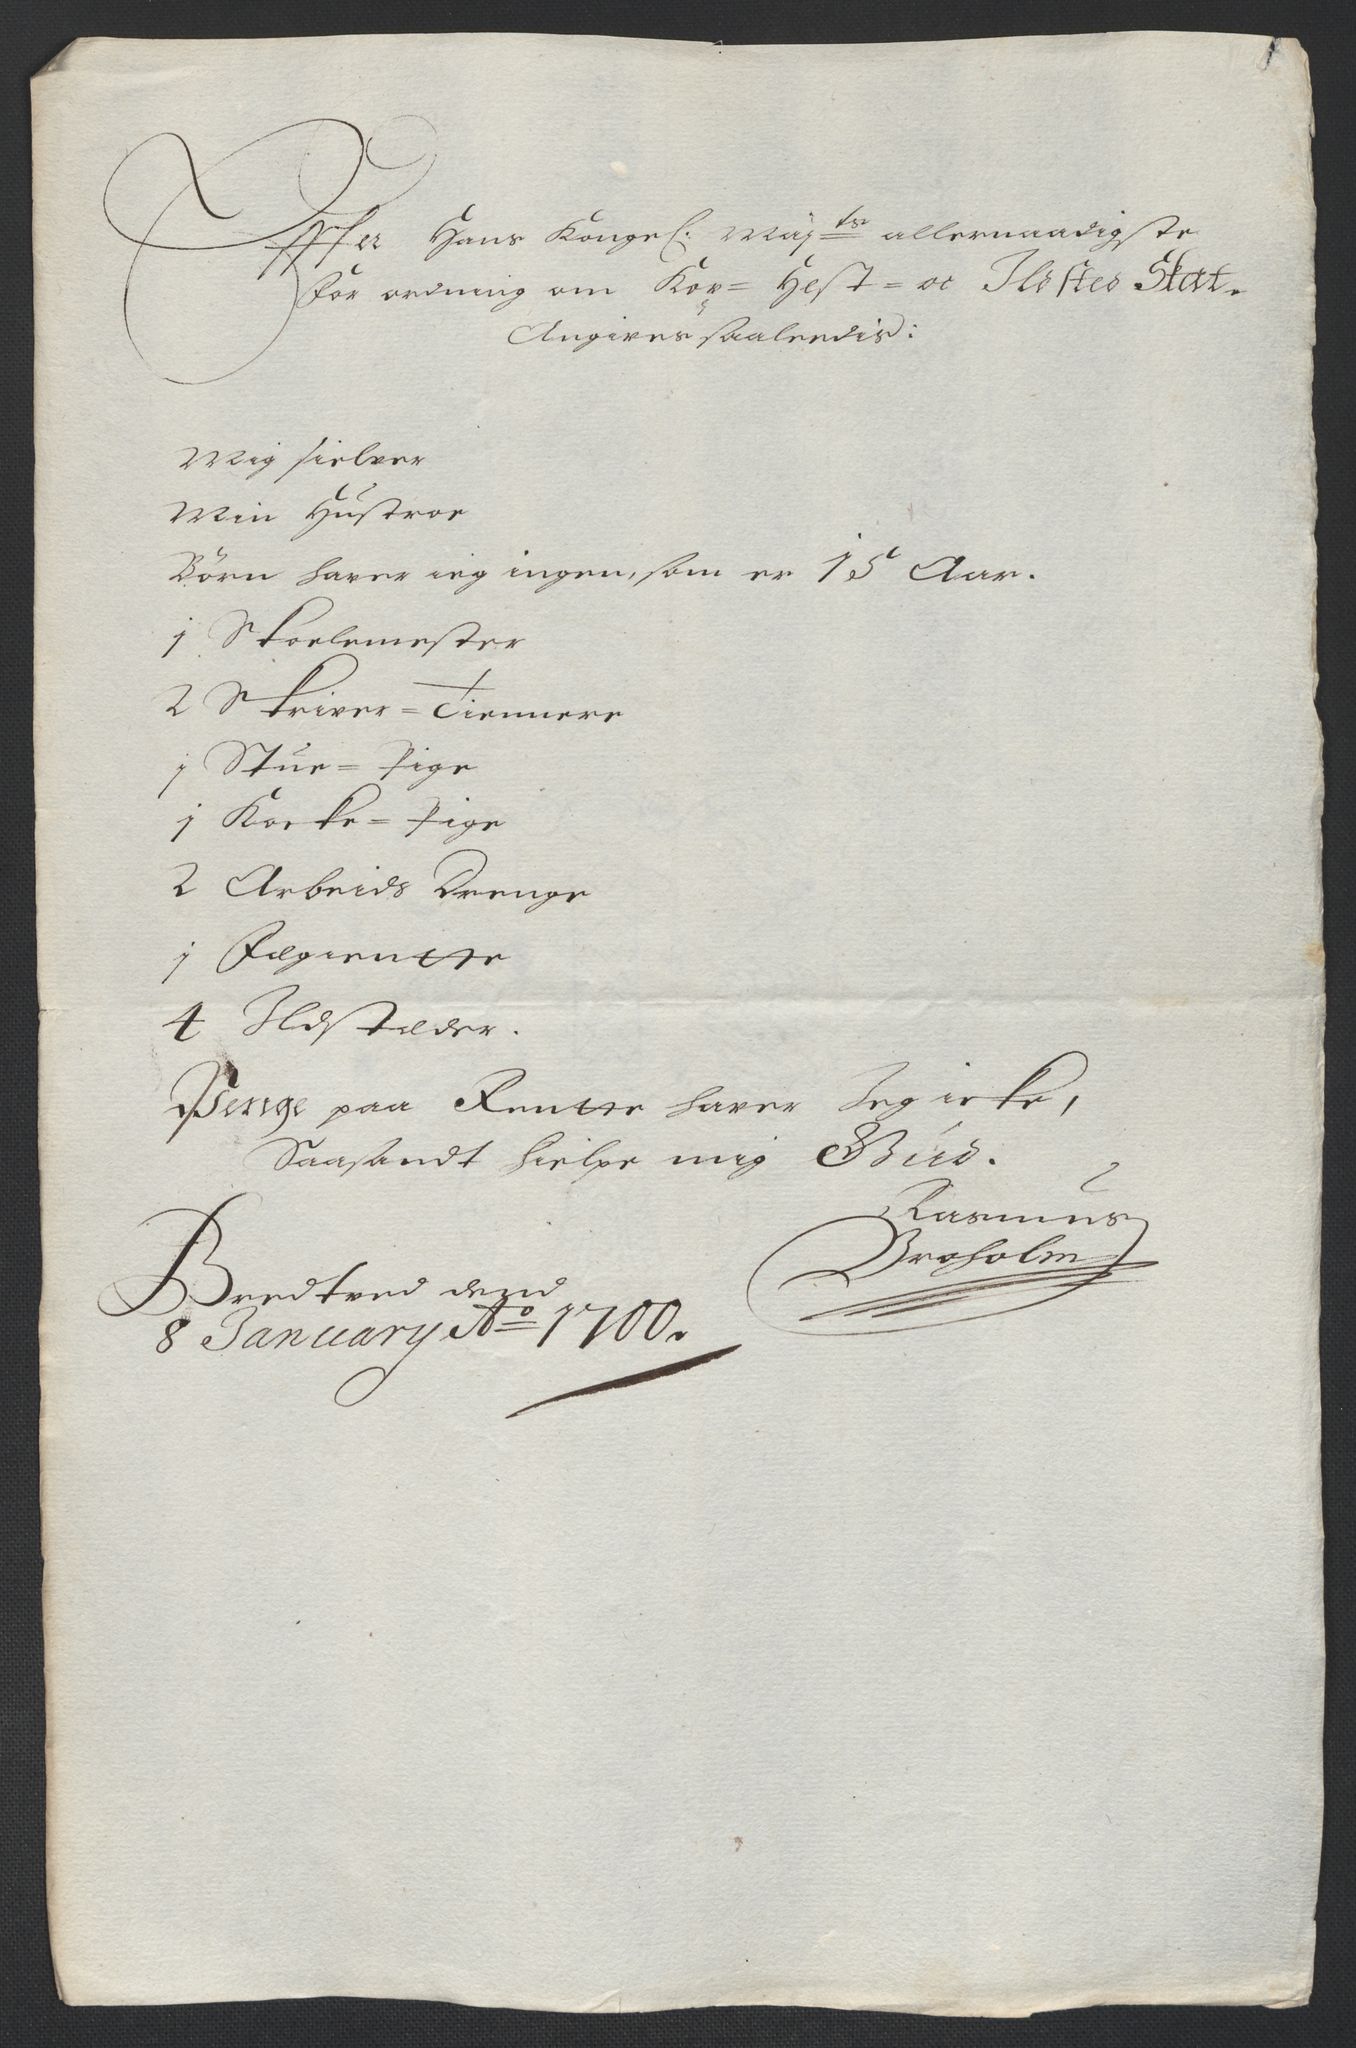 Effter Hans Kongel: Mäy:ts allernaadigste
For ordning om Kop= Hest= oc Ildsted Skat.
Angives saaledis:
Mig sielver
Min Hustroe
Börn haver ieg ingen, som er 15 Aar.
1 Skoelemester
2 Skriver=Tiennere
1 Stue=Pige
1 Kocke=Pige
2 Arbeids Drenge
1 Fægientte
4 Ildstæder.
Penge paa Rentte haver Jeg icke,
Saasandt hielpe mig Gud.
Rasmus
Broholm
Bredtved dend
8 January Ao 1700.